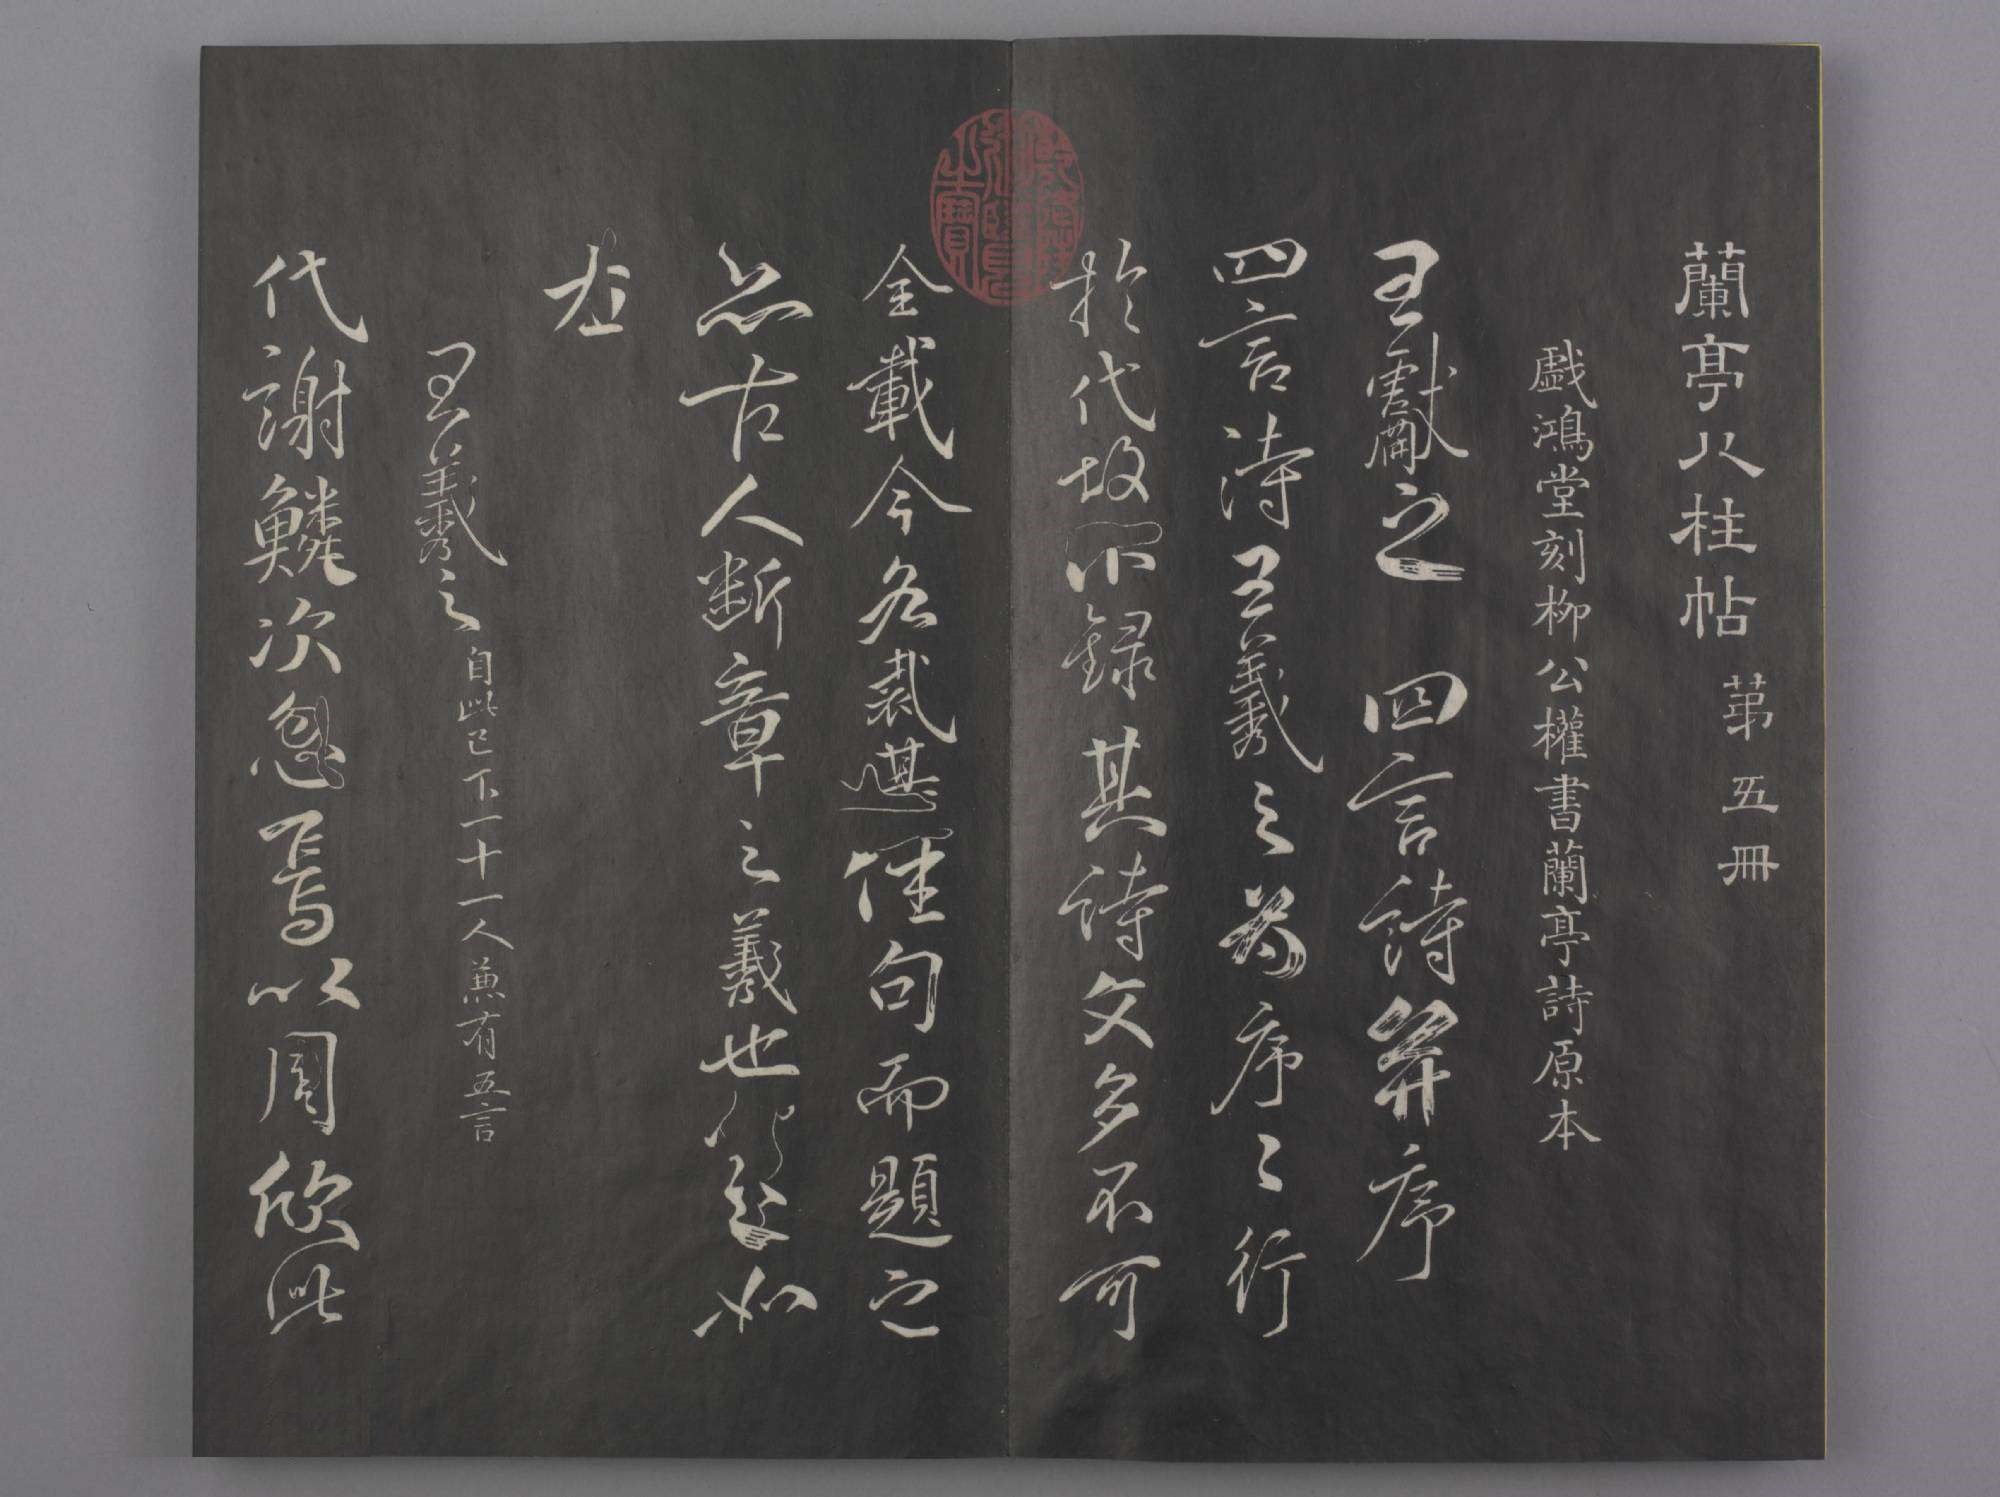 蘭亭八柱帖 第五冊
戲鴻堂刻柳公權書蘭亭詩原本
王獻之 四言詩并序
四言詩王羲之為序序行
於代故不錄其詩文多不可
全載今各裁其佳句而題之
亦古人斷章之義也 如
左
王羲之 自此已下十一人兼有五言
代謝鱗次忽焉以周欣此